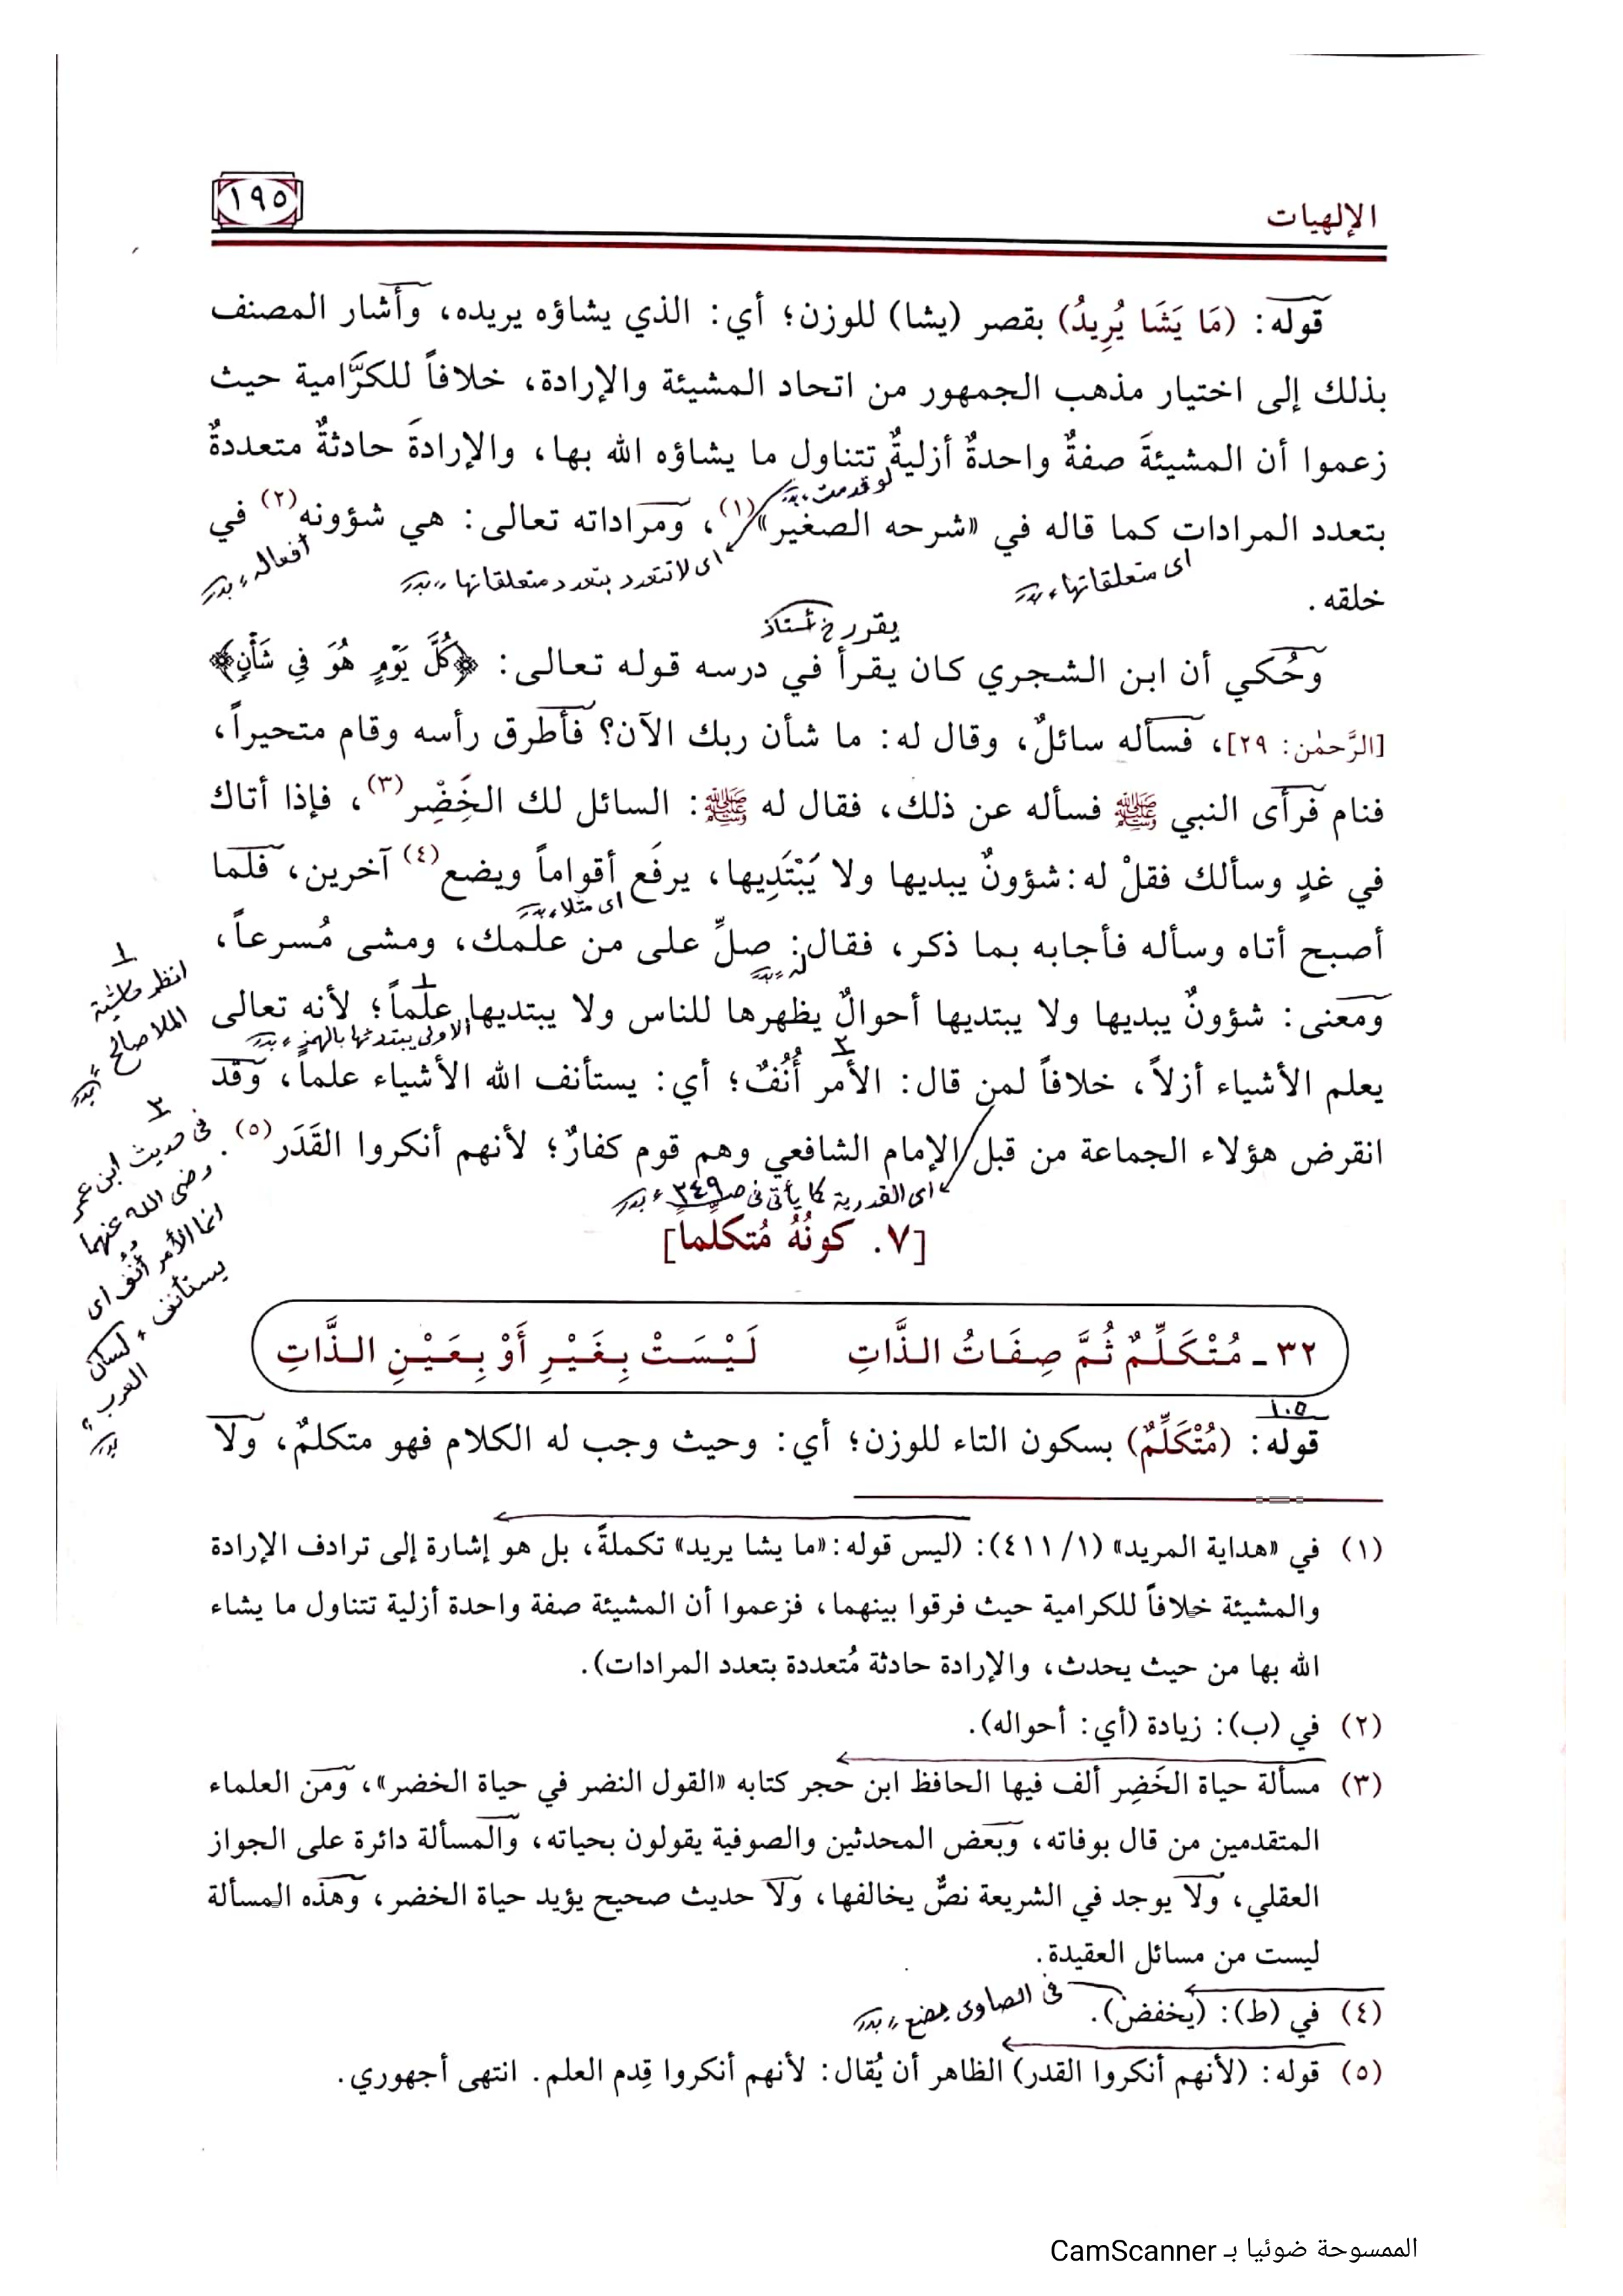 الإلهيات
١٩٥
قوله: (مَا يَشَا يُرِيدُ) بقصر (يشا) للوزن؛ أي: الذي يشاؤه يريده، وأشار المصنف
بذلك إلى اختيار مذهب الجمهور من اتحاد المشيئة والإرادة، خلافاً للكرَّامية حيث
زعموا أن المشيئةَ صفةٌ واحدةٌ أزليةٌ تتناول ما يشاؤه الله بها، والإرادةَ حادثةٌ متعددةٌ
لو قدمت، بدر
بتعدد المرادات كما قاله في «شرحه الصغير»(١)، ومراداته تعالى: هي شؤونه(٢) في
اى متعلقاتها، بدر
اى لا تتعدد بتعدد متعلقاتها، بدر
أفعاله، بدر
خلقه.
يقرر خ أستاذ
وحُكي أن ابن الشجري كان يقرأ في درسه قوله تعالى: ﴿كُلَّ يَوْمٍ هُوَ فِي شَأْنٍ﴾
[الرَّحمٰن: ٢٩]، فسأله سائلٌ، وقال له: ما شأن ربك الآن؟ فأطرق رأسه وقام متحيراً،
فنام فرأى النبي ﷺ فسأله عن ذلك، فقال له ﷺ: السائل لك الخَضِْر(٣)، فإذا أتاك
في غدٍ وسألك فقلْ له: شؤونٌ يبديها ولا يَبْتَدِيها، يرفَع أقواماً ويضع(٤) آخرين، فلما
اى مثلا، بدر
أصبح أتاه وسأله فأجابه بما ذكر، فقال: صلِّ على من علمك، ومشى مُسرعاً،
له، بدر
ومعنى: شؤونٌ يبديها ولا يبتديها أحوالٌ يظهرها للناس ولا يبتديها علماً؛ لأنه تعالى
الاولى يبتدئها بالهمز، بدر
يعلم الأشياء أزلاً، خلافاً لمن قال: الأمر أُنُفٌ؛ أي: يستأنف الله الأشياء علماً، وقد
انقرض هؤلاء الجماعة من قبل الإمام الشافعي وهم قوم كفارٌ؛ لأنهم أنكروا القَدَر(٥).
اى القدرية كما يأتى فى صـ ٣٤٩، بدر
١
انظر حاشية
الملا صالح، بدر
٢
فى حديث ابن عمر
رضى الله عنهما
انما الأمر أُنُف اى
يستأنف، لسان
العرب،
بدر
[٧. كونُهُ مُتكلِّماً]
٣٢ - مُتْكَلِّمٌ ثُمَّ صِفَاتُ الذَّاتِ لَيْسَتْ بِغَيْرِ أَوْ بِعَيْنِ الذَّاتِ
١٠٥
قوله: (مُتْكَلِّمٌ) بسكون التاء للوزن؛ أي: وحيث وجب له الكلام فهو متكلمٌ، ولا
(١) في «هداية المريد» (١/٤١١): (ليس قوله: «ما يشا يريد» تكملةً، بل هو إشارة إلى ترادف الإرادة
والمشيئة خلافاً للكرامية حيث فرقوا بينهما، فزعموا أن المشيئة صفة واحدة أزلية تتناول ما يشاء
الله بها من حيث يحدث، والإرادة حادثة مُتعددة بتعدد المرادات).
(٢) في (ب): زيادة (أي: أحواله).
(٣) مسألة حياة الخَضِر ألف فيها الحافظ ابن حجر كتابه «القول النضر في حياة الخضر»، ومن العلماء
المتقدمين من قال بوفاته، وبعض المحدثين والصوفية يقولون بحياته، والمسألة دائرة على الجواز
العقلي، ولا يوجد في الشريعة نصٌّ يخالفها، ولا حديث صحيح يؤيد حياة الخضر، وهذه المسألة
ليست من مسائل العقيدة.
(٤) في (ط): (يخفض).
فى الصاوى يضع، بدر
(٥) قوله: (لأنهم أنكروا القدر) الظاهر أن يُقال: لأنهم أنكروا قِدم العلم. انتهى أجهوري.
الممسوحة ضوئيا بـ CamScanner